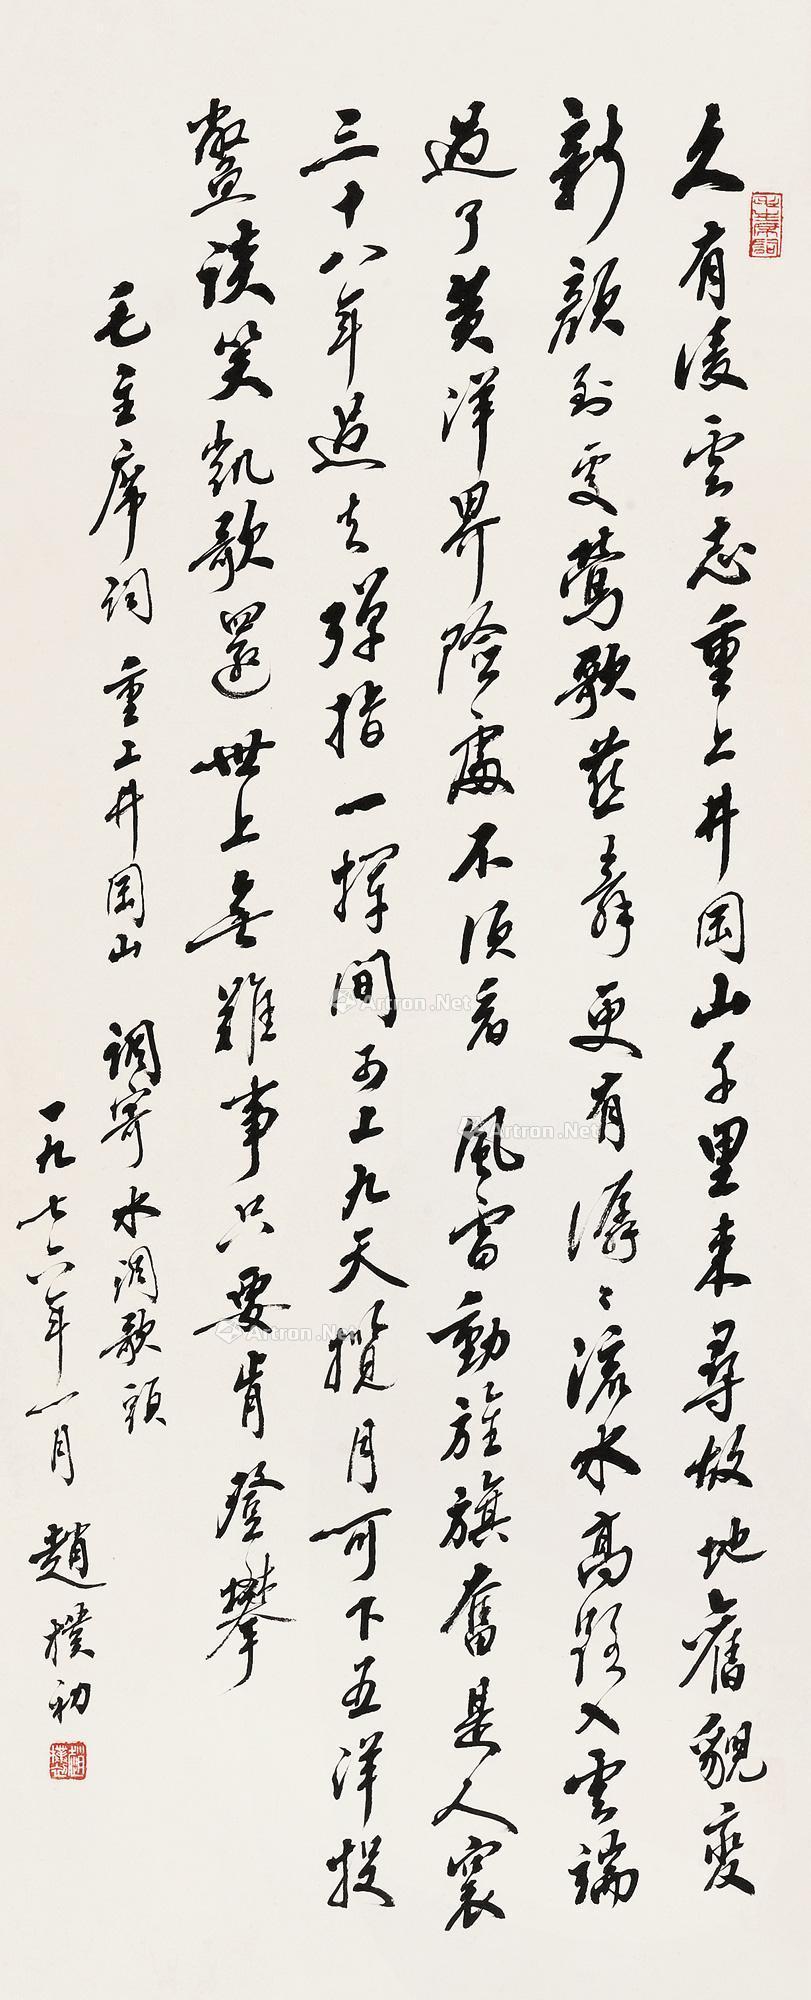 久有凌雲志重上井岡山千里来尋故地舊貌變
新顔到處鶯歌燕舞更有潺々流水高路入雲端
過了黄洋界險處不須看 風雷動旌旗奮是人寰
三十八年過去彈指一揮間可上九天攬月可下五洋捉
鱉談笑凱歌還世上無難事只要肯登攀
毛主席詞 重上井岡山 調寄水調歌頭
一九七六年一月 趙樸初
趙樸初
Artron.Net
Artron.Net
Artron.Net